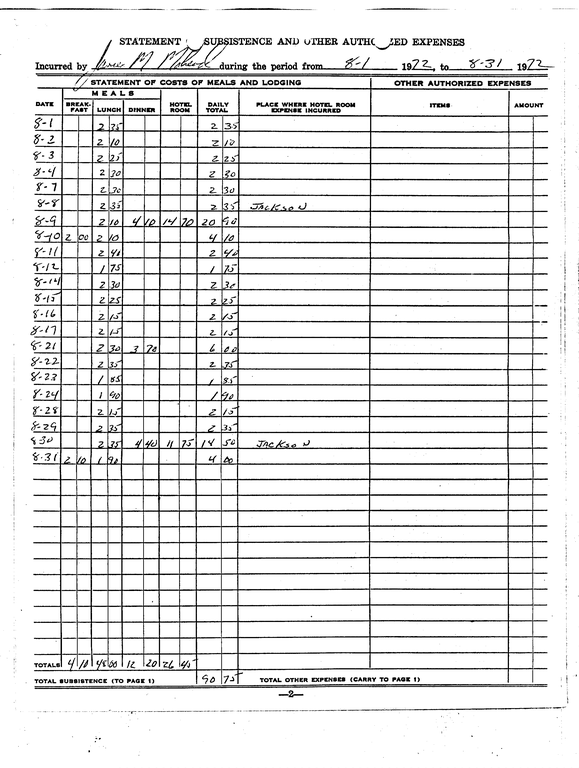 STATEMENT SUBSISTENCE AND OTHER AUTHO ZED EXPENSES
Incurred by M during the period from 8-1 1972, to 8-31 1972
STATEMENT OF COSTS OF MEALS AND LODGING OTHER AUTHORIZED EXPENSES
MEALS
DATE BREAK-FAST LUNCH DINNER HOTEL ROOM DAILY TOTAL PLACE WHERE HOTEL ROOM EXPENSE INCURRED ITEMS AMOUNT
8-1 2 35 2 35
8-2 2 10 2 10
8-3 2 25 2 25
8-4 2 30 2 30
8-7 2 30 2 30
8-8 2 35 2 35 JACKSON
8-9 2 10 4 10 14 70 20 90
8-10 2 00 2 10 4 10
8-11 2 40 2 40
8-12 1 75 1 75
8-14 2 30 2 30
8-15 2 25 2 25
8-16 2 15 2 15
8-17 2 15 2 15
8-21 2 30 3 70 6 00
8-22 2 35 2 35
8-23 1 85 1 85
8-24 1 90 1 90
8-28 2 15 2 15
8-29 2 35 2 35
8 30 2 35 4 40 11 75 18 50 JACKSON
8-31 2 10 1 90 4 00
TOTALS 4 10 48 00 12 20 26 45
TOTAL SUBSISTENCE (TO PAGE 1) 90 75 TOTAL OTHER EXPENSES (CARRY TO PAGE 1)
—2—